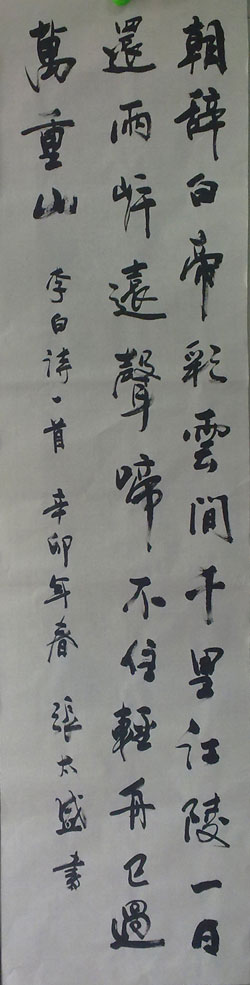 朝辭白帝彩雲間千里江陵一日
還兩岸遠聲啼不住輕舟已過
萬重山 李白詩一首 辛卯年春 張太盛書